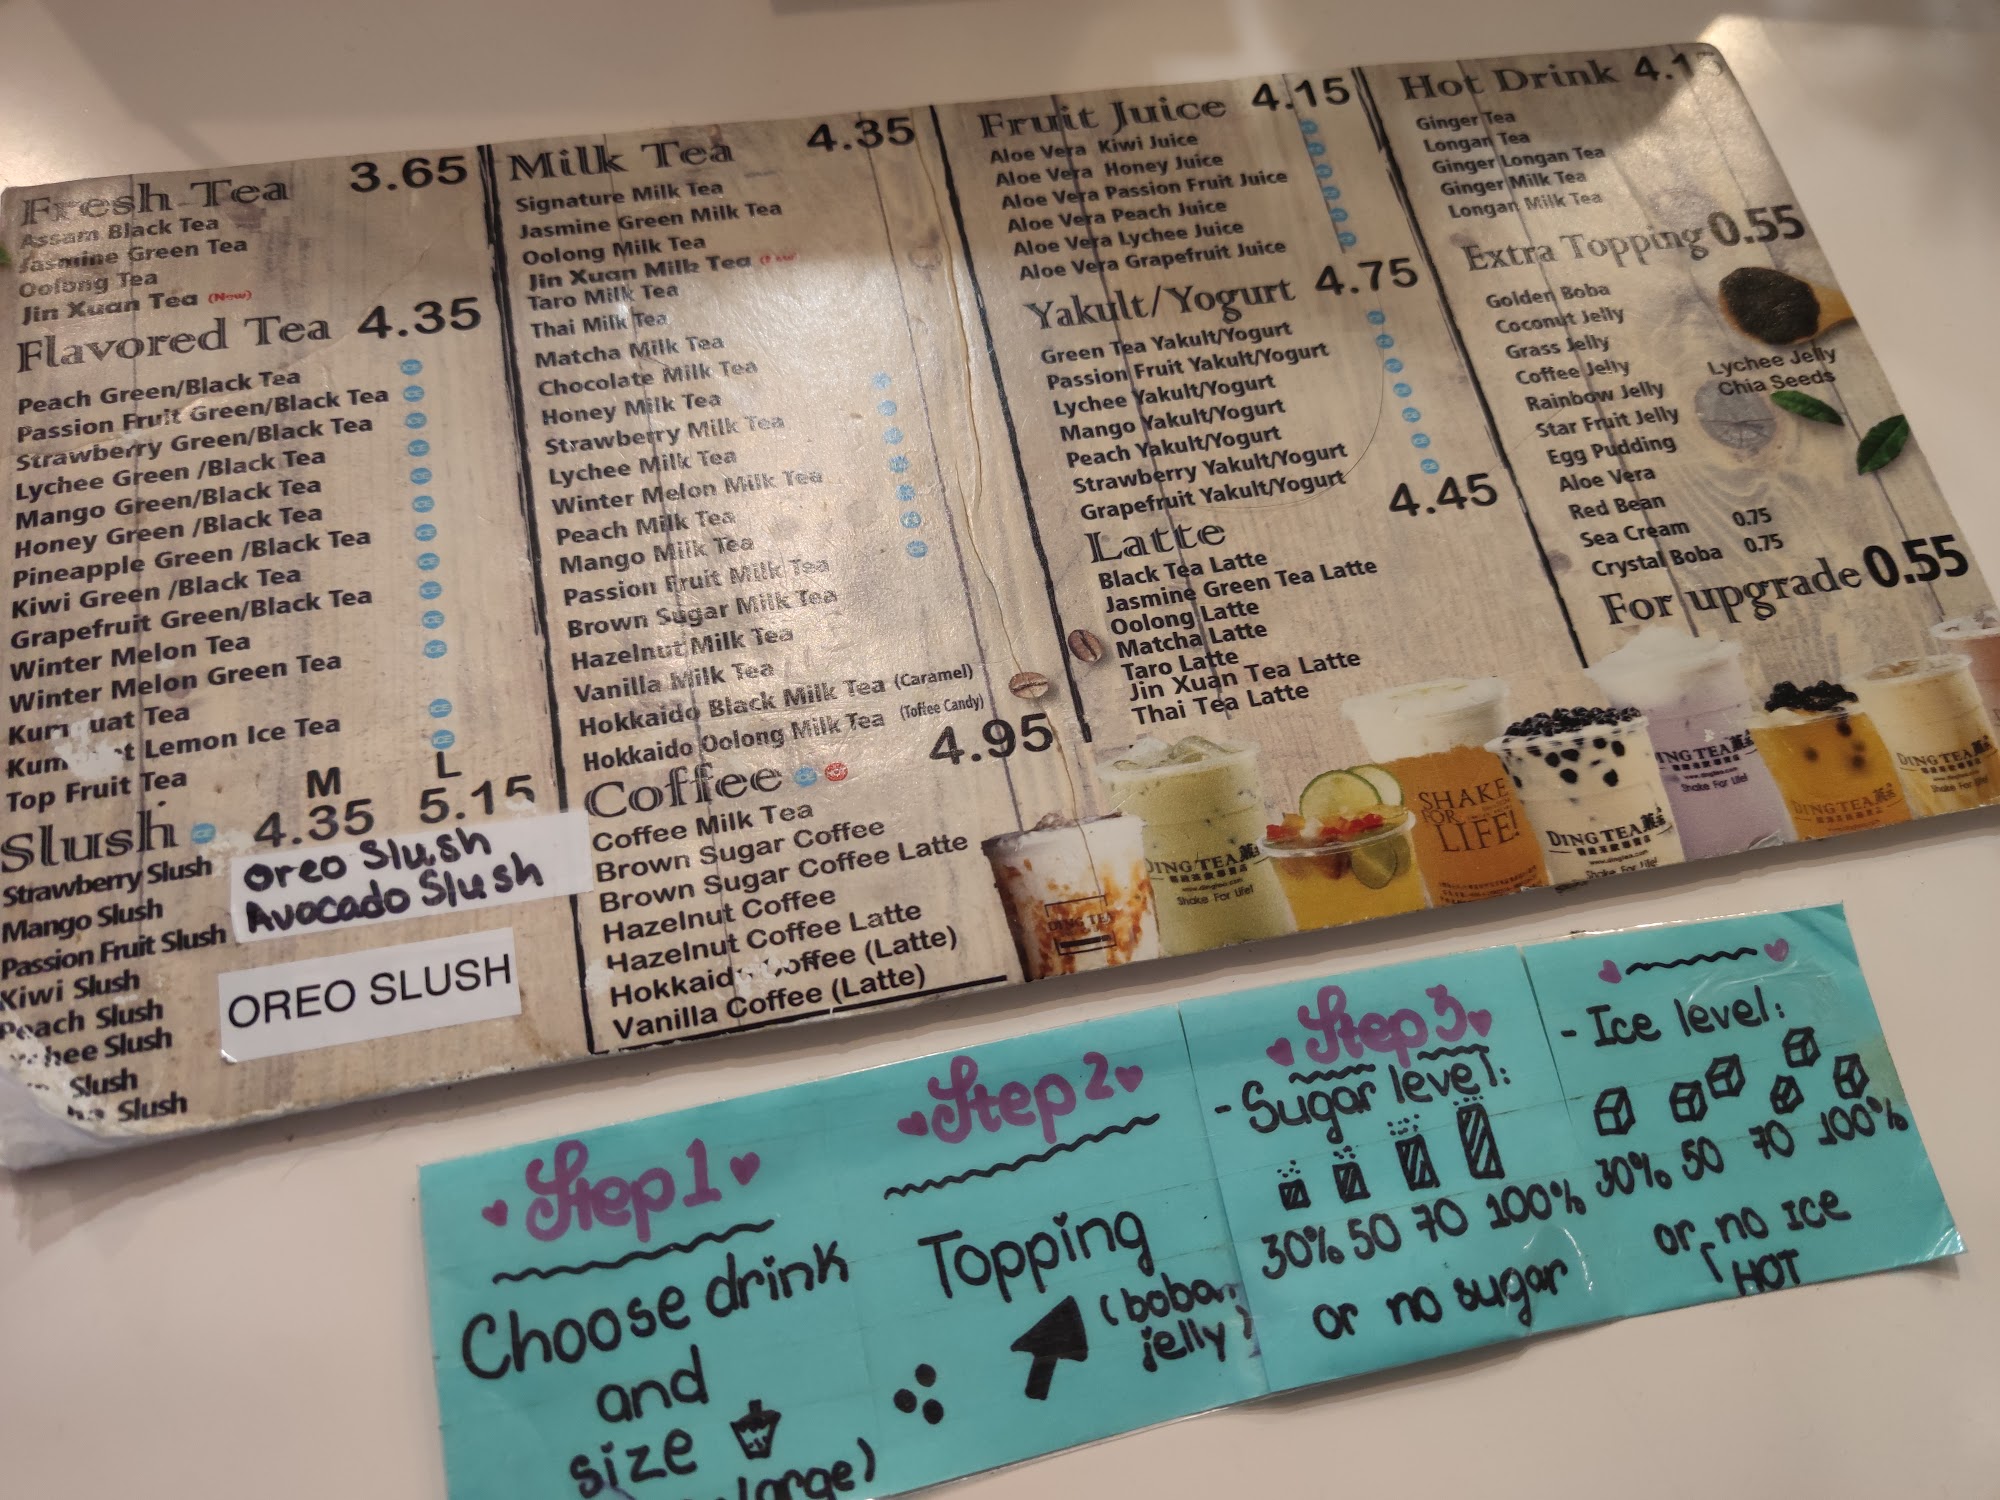 Fresh Tea 3.65
Assam Black Tea
Jasmine Green Tea
Oolong Tea
Jin Xuan Tea (New)
Flavored Tea 4.35
Peach Green/Black Tea
Passion Fruit Green/Black Tea
Strawberry Green/Black Tea
Lychee Green /Black Tea
Mango Green/Black Tea
Honey Green /Black Tea
Pineapple Green /Black Tea
Kiwi Green /Black Tea
Grapefruit Green/Black Tea
Winter Melon Tea
Winter Melon Green Tea
Tea
Lemon Ice Tea
Top Fruit Tea
M L
Slush ICE 4.35 5.15
Strawberry Slush
Mango Slush
Passion Fruit Slush
Kiwi Slush
Peach Slush
Slush
Slush
Slush
Oreo Slush
Avocado Slush
OREO SLUSH
Milk Tea 4.35
Signature Milk Tea
Jasmine Green Milk Tea
Oolong Milk Tea
Jin Xuan Milk Tea
Taro Milk Tea
Thai Milk Tea
Matcha Milk Tea
Chocolate Milk Tea
Honey Milk Tea
Strawberry Milk Tea
Lychee Milk Tea
Winter Melon Milk Tea
Peach Milk Tea
Mango Milk Tea
Passion Fruit Milk Tea
Brown Sugar Milk Tea
Hazelnut Milk Tea
Vanilla Milk Tea
Hokkaido Black Milk Tea (Caramel)
Hokkaido Oolong Milk Tea (Toffee Candy)
Coffee 4.95
Coffee Milk Tea
Brown Sugar Coffee
Brown Sugar Coffee Latte
Hazelnut Coffee
Hazelnut Coffee Latte
(Latte)
Vanilla Coffee (Latte)
Fruit Juice 4.15
Aloe Vera Kiwi Juice
Aloe Vera Honey Juice
Aloe Vera Passion Fruit Juice
Aloe Vera Peach Juice
Aloe Vera Lychee Juice
Aloe Vera Grapefruit Juice
Yakult/Yogurt 4.75
Green Tea Yakult/Yogurt
Passion Fruit Yakult/Yogurt
Lychee Yakult/Yogurt
Mango Yakult/Yogurt
Peach Yakult/Yogurt
Strawberry Yakult/Yogurt
Grapefruit Yakult/Yogurt
Latte 4.45
Black Tea Latte
Jasmine Green Tea Latte
Oolong Latte
Matcha Latte
Taro Latte
Jin Xuan Tea Latte
Thai Tea Latte
Hot Drink
Ginger Tea
Longan Tea
Ginger Longan Tea
Ginger Milk Tea
Longan Milk Tea
Extra Topping 0.55
Golden Boba
Coconut Jelly
Grass Jelly
Coffee Jelly
Rainbow Jelly
Star Fruit Jelly
Egg Pudding
Aloe Vera
Red Bean
Sea Cream 0.75
Crystal Boba 0.75
Lychee Jelly
Chia Seeds
For upgrade 0.55
DING TEA
www.dingtea.com
Shake For Life!
SHAKE
FOR
LIFE!
DING TEA
Shake For Life!
DING TEA
Shake For Life!
DING TEA
DING TEA
Step 1
Choose drink
and
size
Step 2
Topping
(boba,
jelly)
Step 3
- Sugar level:
30% 50 70 100%
or no sugar
- Ice level:
30% 50 70 100%
or no ICE
HOT